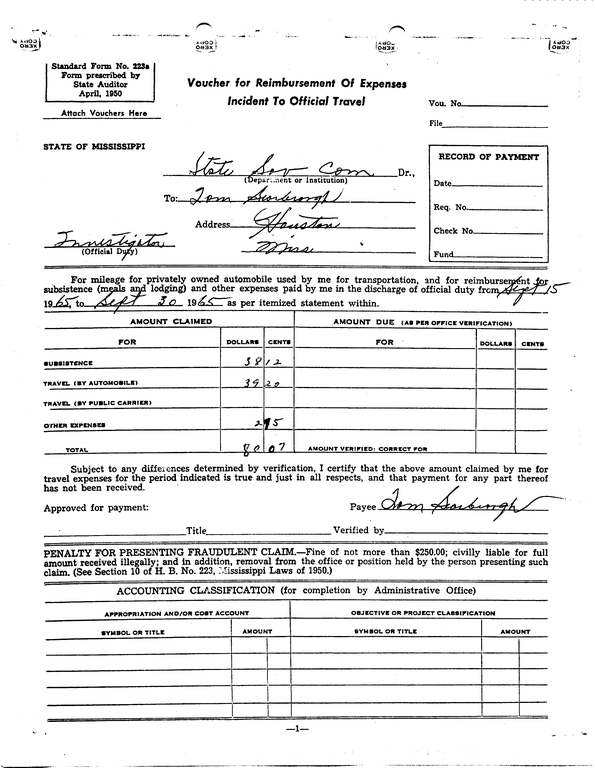 XERO COPY XERO COPY XERO COPY XERO COPY
Standard Form No. 223a
Form prescribed by
State Auditor
April, 1950
Attach Vouchers Here
Voucher for Reimbursement Of Expenses
Incident To Official Travel
Vou. No.
File
STATE OF MISSISSIPPI
State Sov Com Dr.,
(Department or Institution)
To: Tom Scarbrough
Address Houston
Miss
Investigator
(Official Duty)
RECORD OF PAYMENT
Date
Req. No.
Check No.
Fund
For mileage for privately owned automobile used by me for transportation, and for reimbursement for
subsistence (meals and lodging) and other expenses paid by me in the discharge of official duty from Sept 15
1965, to Sept 30 1965 as per itemized statement within.
AMOUNT CLAIMED AMOUNT DUE (AS PER OFFICE VERIFICATION)
FOR DOLLARS CENTS FOR DOLLARS CENTS
SUBSISTENCE 38 12
TRAVEL (BY AUTOMOBILE) 39 20
TRAVEL (BY PUBLIC CARRIER)
OTHER EXPENSES 2 75
TOTAL 80 07 AMOUNT VERIFIED: CORRECT FOR
Subject to any differences determined by verification, I certify that the above amount claimed by me for
travel expenses for the period indicated is true and just in all respects, and that payment for any part thereof
has not been received.
Approved for payment: Payee Tom Scarbrough
Title Verified by
PENALTY FOR PRESENTING FRAUDULENT CLAIM.—Fine of not more than $250.00; civilly liable for full
amount received illegally; and in addition, removal from the office or position held by the person presenting such
claim. (See Section 10 of H. B. No. 223, Mississippi Laws of 1950.)
ACCOUNTING CLASSIFICATION (for completion by Administrative Office)
APPROPRIATION AND/OR COST ACCOUNT OBJECTIVE OR PROJECT CLASSIFICATION
SYMBOL OR TITLE AMOUNT SYMBOL OR TITLE AMOUNT
—1—